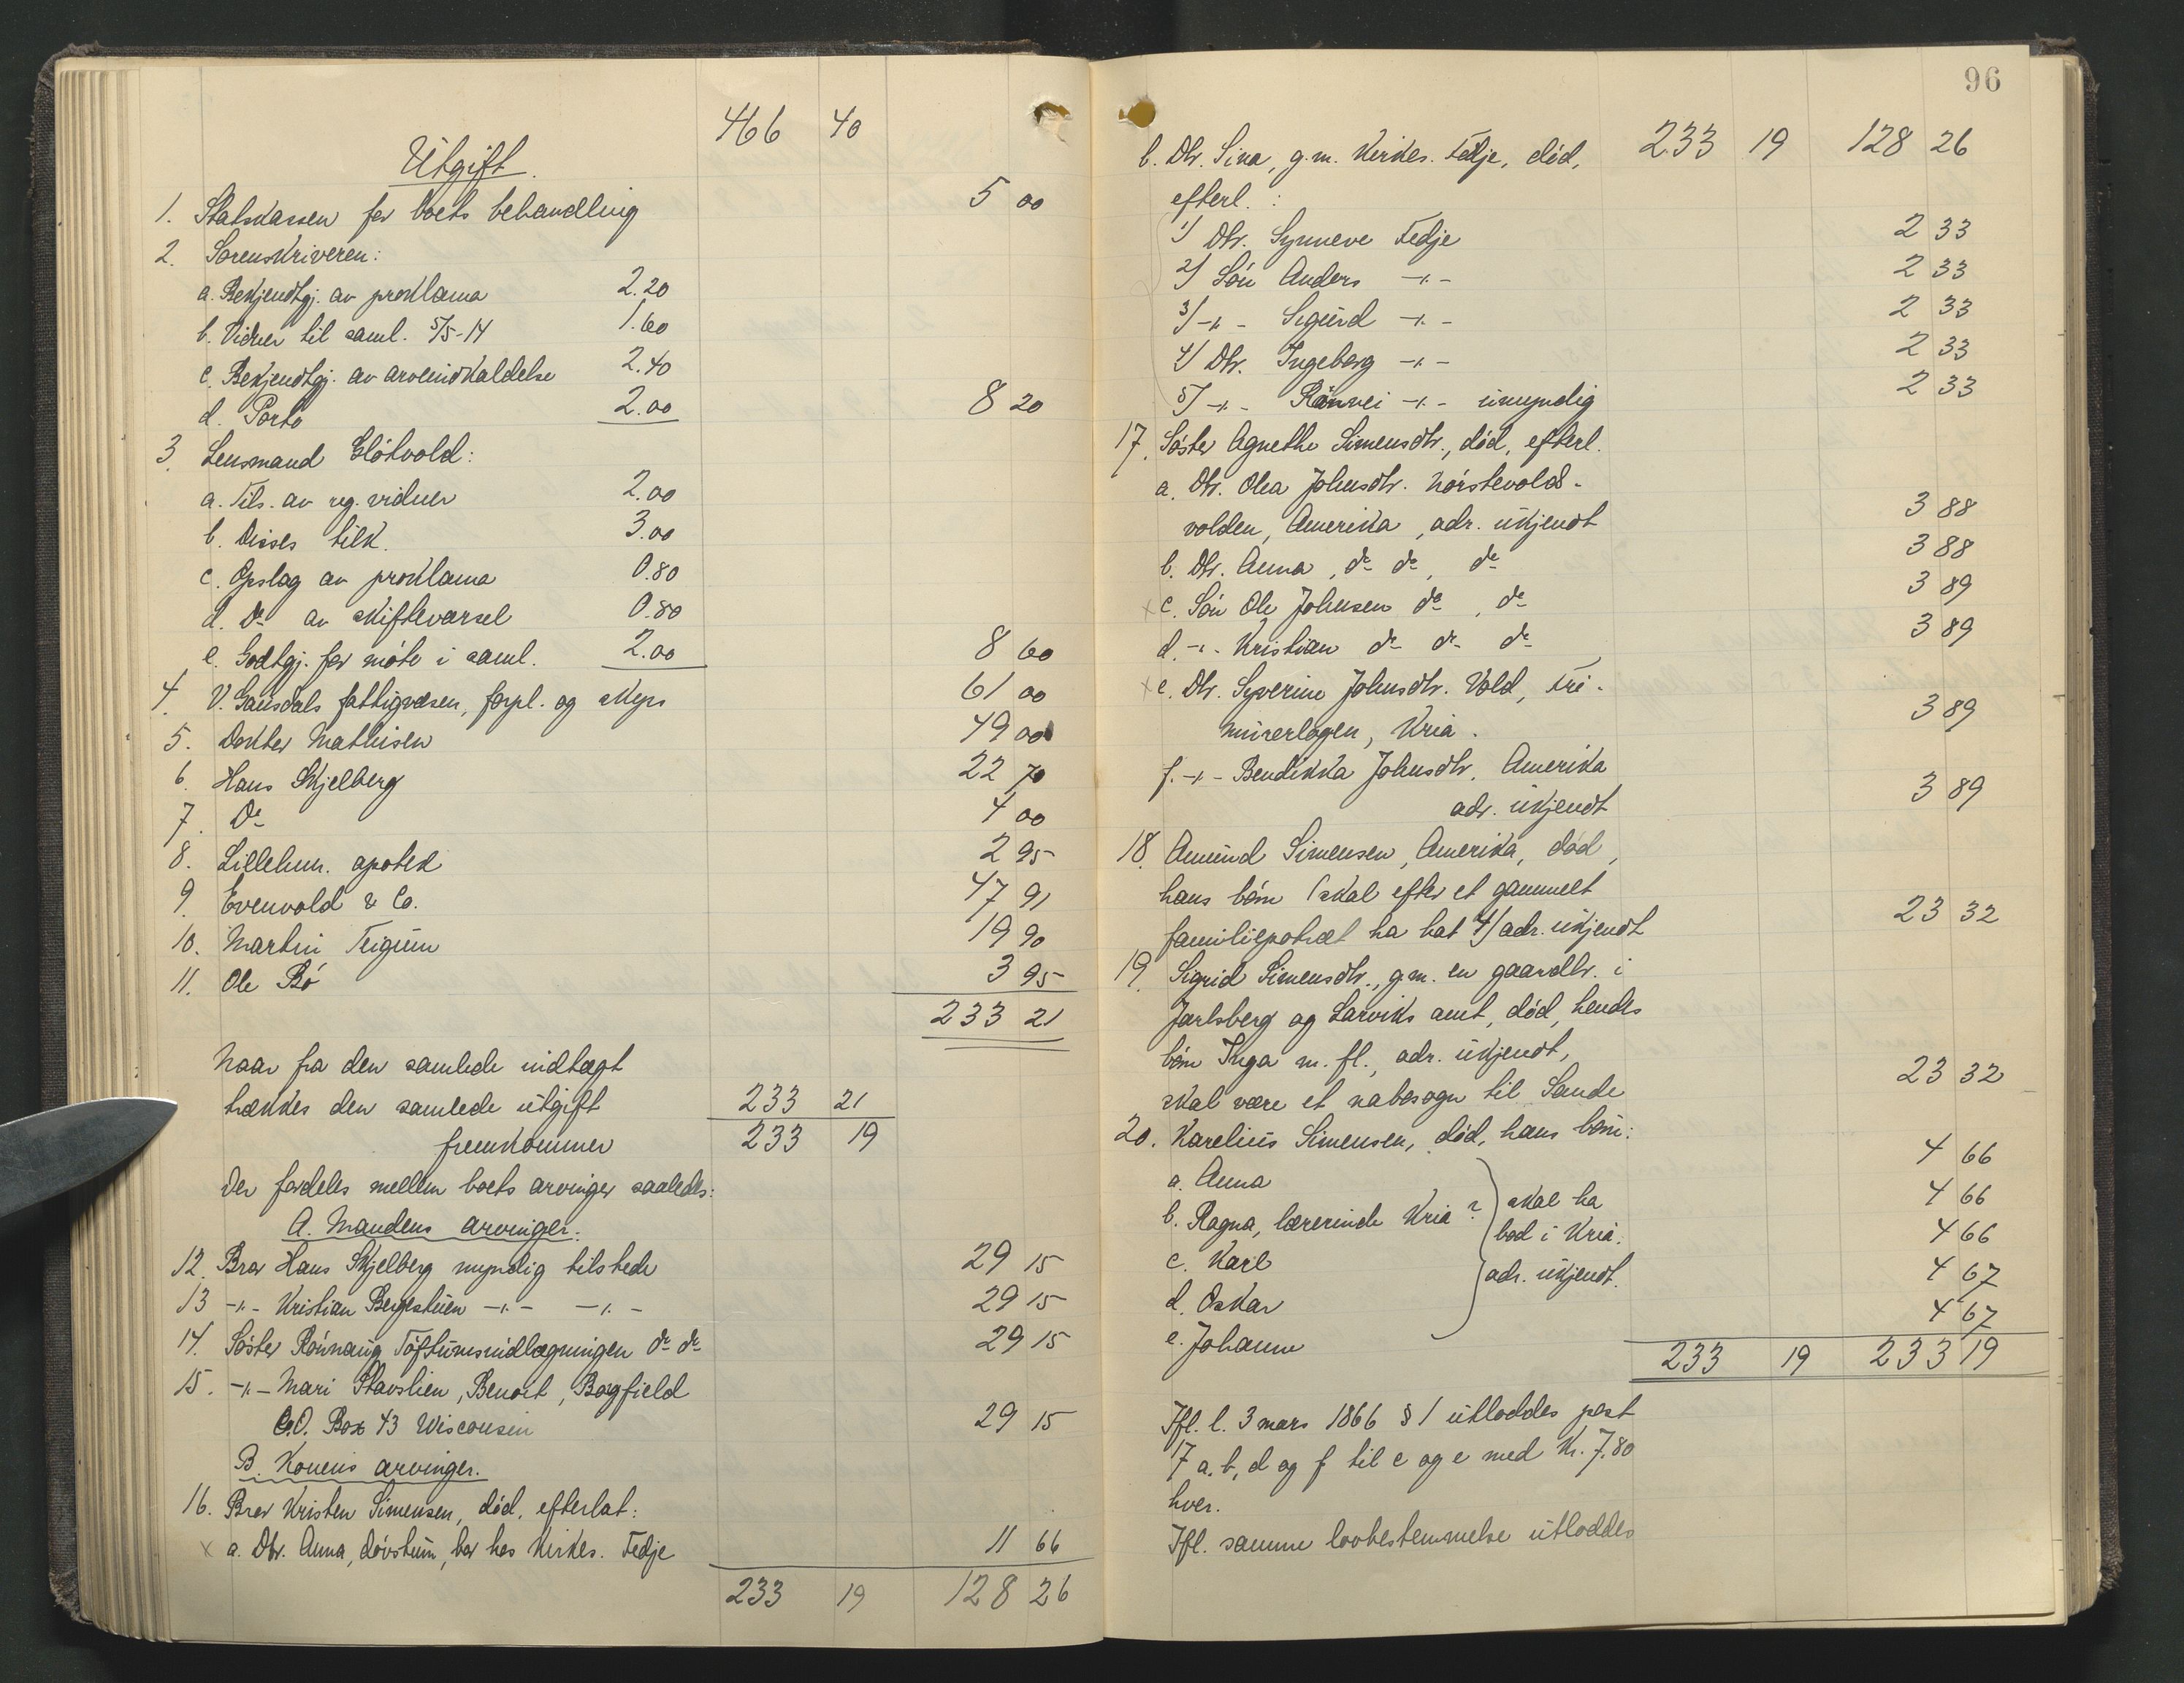 466 40
Utgift.
1. Statskassen for boets behandling 5 00
2. Sorenskriveren:
a. Bekjendtgj. av proklama 2.20
b. Vidner til saml. 5/5-14 1.60
c. Bekjendtgj. av arveindkaldelse 2.40
d. Porto 2.00 8 20
3. Lensmand Glötvold:
a. Tils. av reg. vidner 2.00
b. Disses tilk. 3.00
c. Opslag av proklama 0.80
d. Do av skiftevarsel 0.80
e. Godtgj. for möte i saml. 2.00 8 60
4. V. Gausdals fattigvæsen, forpl. og skyss 61 00
5. Dokter Mathisen 49 00
6. Hans Skjelberg 22 70
7. Do 4 00
8. Lillehm. apotek 2 95
9. Evenvold & Co. 47 91
10. Martin Trigum 19 90
11. Ole Bö 3 95
233 21
Naar fra den samlede indtægt
trækkes den samlede utgift 233 21
fremkommer 233 19
der fordeles mellem boets arvinger saaledes:
A. Mandens arvinger.
12. Bror Hans Skjelberg myndig tilstede 29 15
13 -"- Kristian Bergestuen -"- -"- 29 15
14. Söster Rönnaug Töftumsindlægningen do do 29 15
15. -"- Mari Stavslien, Benoit, Bogfield
P.O. Box 43 Wisconsin 29 15
B. Konens arvinger.
16. Bror Kristen Simensen, död, efterlat:
x a. Dtr. Anna, dövstum, bor hos Kirkes. Fedje 11 66
233 19 128 26
96
b. Dtr. Sina, g.m. Kirkes. Fedje, död, 233 19 128 26
efterl.:
1) Dtr. Synneve Fedje 2 33
2) Sön Anders -"- 2 33
3) -"- Sigurd -"- 2 33
4) Dtr. Ingeborg -"- 2 33
5) -"- Rönnei -"- umyndig 2 33
17. Söster Agnethe Simensdtr., död, efterl.
a. Dtr. Olea Johnsdtr. Nörstevolds-
volden, Amerika, adr. ukjendt 3 88
b. Dtr. Anna, do do, do 3 88
x c. Sön Ole Johnsen do, do 3 89
d. -"- Kristian do do do 3 89
x e. Dtr. Syverine Johnsdtr. Vold, Fri-
murerlogen, Kria. 3 89
f. -"- Bendikka Johnsdtr. Amerika
adr. ukjendt 3 89
18. Amund Simensen, Amerika, död,
hans börn (skal efter et gammelt
familiepotræt ha hat 4) adr. ukjendt 23 32
19. Sigrid Simensdtr., g.m. en gaardbr. i
Jarlsberg og Larviks amt, död, hendes
börn Inga m. fl., adr. ukjendt,
skal være et nabosogn til Sande 23 32
20. Karelius Simensen, död, hans börn:
a. Anna 4 66
b. Ragna, lærerinde Kria? skal ha 4 66
bod i Kria.
c. Karl 4 66
adr. ukjendt.
d. Oskar 4 67
e. Johanne 4 67
233 19 233 19
Ifl. l. 3 mars 1866 § 1 utloddes post
17 a, b, d og f til c og e med Kr. 7.80
hver.
Ifl. samme lovbestemmelse utloddes